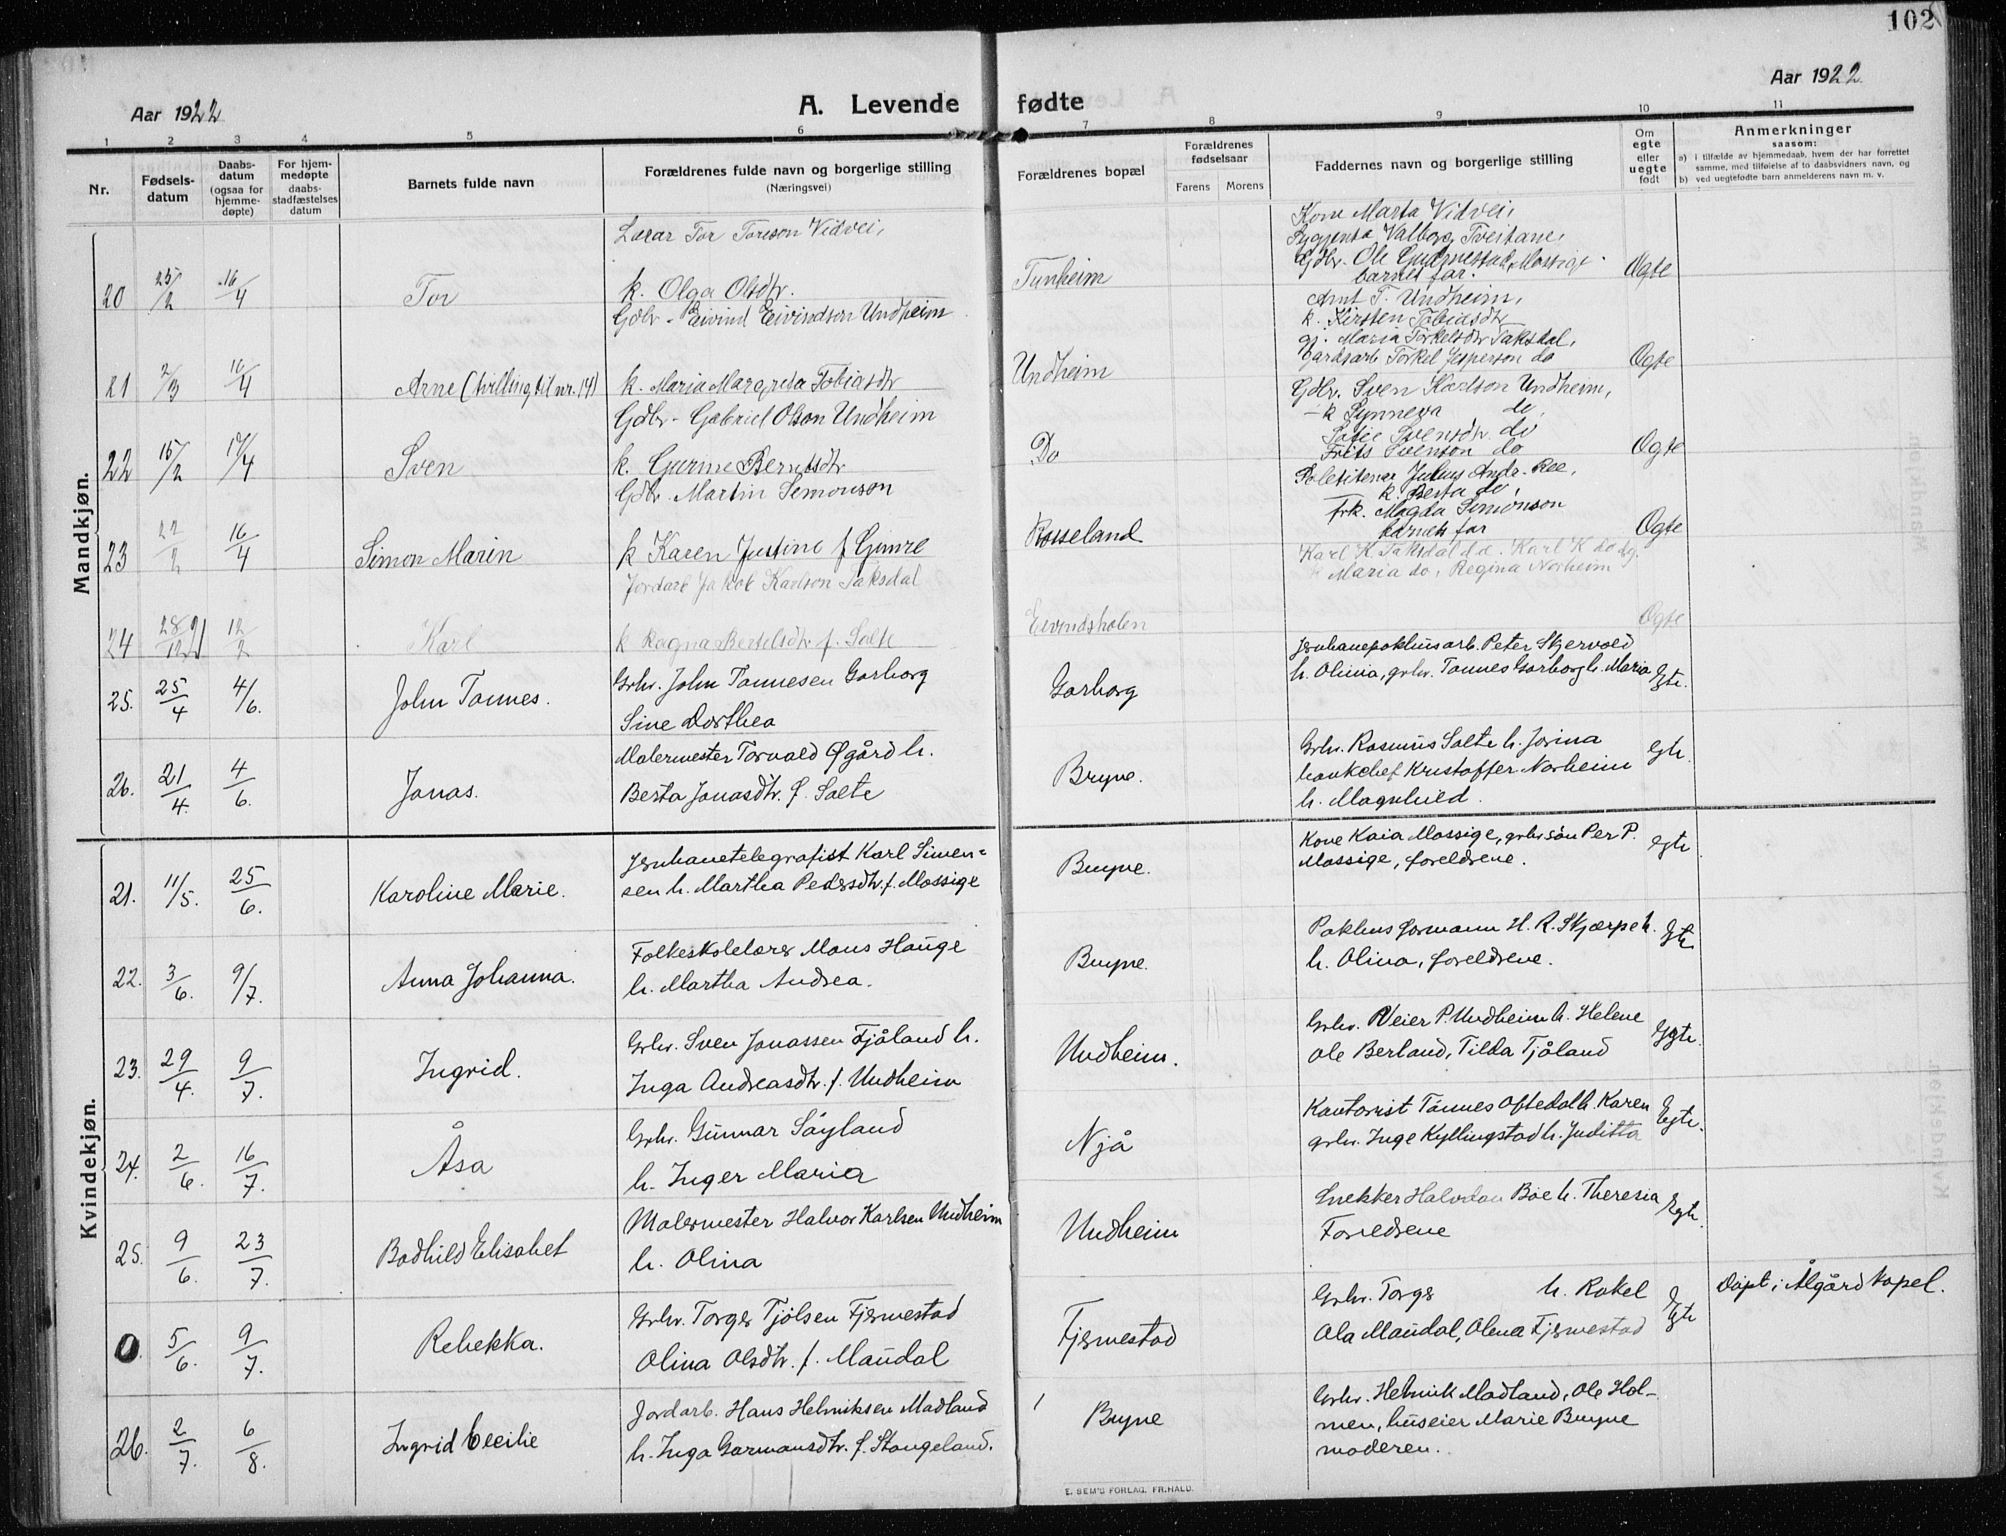 102
Aar 1922
A. Levende fødte
Aar 1922
1 2 3 4 5 6 7 8 9 10 11
Nr.
Fødsels-
datum
Daabs-
datum
(ogsaa for
hjemme-
døpte)
For hjem-
medøpte
daabs-
stadfæstelses
datum
Barnets fulde navn
Forældrenes fulde navn og borgerlige stilling
(Næringsvei)
Forældrenes bopæl
Forældrenes
fødselsaar
Farens Morens
Faddernes navn og borgerlige stilling
Om
egte
eller
uegte
født
Anmerkninger
saasom:
a) i tilfælde av hjemmedaab, hvem der har forrettet
samme, med tilføielse af to daabsvidners navn, og
b) ved uegtefødte barn anmelderens navn m. v.
Mandkjøn.
20 25/2 16/4 Tor
Lærar Tor Toreson Vidvei,
k. Olga Olsdtr.
Tunheim
Kone Marta Vidvei,
Valborg Tveitane,
Gdbr. Ole Mossige
barnets far.
Ogte
21 2/3 16/4 Arne (tvilling til nr. 19)
Gdbr - Eivind Eivindson Undheim
k. Maria Margreta Tobiasdtr
Undheim
Arnt T. Undheim,
k. Kirsten Tobiasdtr
gj. Maria Torkelsdtr Taksdal,
Gardsarb Torkel Jesperson do
Ogte
22 15/2 17/4 Sven
Gdbr - Gabriel Olson Undheim
k. Gurine Berntsdtr
Do
Gdbr. Sven Karlson Undheim,
- k Synneva do,
Sofie Svensdtr. do
Frits Svenson do
Ogte
23 22/2 16/4 Simon Marin
Gdbr. Martin Semonson
k Karen Justine f Gimre
Rosseland
Julius Andr. Ree,
k. Berta do,
frk. Magda Simonson
barnets far
Ogte
24 28/12 21 12/2 Karl
Jordarb Jakob Karlson Taksdal
k Ragna Bertelsdtr f. Salte
Eivindsholen
Karl K. Taksdal d.e. Karl K do dy.
Maria do, Regina Norheim
Ogte
25. 25/4 4/6. John Tønnes.
Grbr. John Tønnesen Garborg
Sine Dorthea
Garborg
Jernbanepakhusarb. Peter Skjervold
h. Olina, grbr. Tønnes Garborg h. Maria
Egte.
26. 21/4. 4/6. Jonas.
Malermester Torvald Øgård h.
Berta Jonasdtr. f. Salte
Bryne.
Grbr. Rasmus Salte h. Jorina
bankchef Kristoffer Norheim
h. Magnhild.
egte
Kvindekjøn.
21. 11/5. 25/6. Karoline Marie.
Jernbanetelegrafist Karl Simen=
sen h. Martha Pedersdtr. f. Mossige
Bryne.
Kone Kaia Mossige, grbr søn Per P.
Mossige, foreldrene.
egte
22. 3/6. 9/7. Anna Johanna.
Folkeskolelærer Mons Hauge
h. Martha Andrea.
Bryne.
Pakhusformann H. R. Skjærpe h.
h. Olina, foreldrene.
Egte
23. 29/4. 9/7. Ingrid.
Grbr. Sven Jonassen Tjåland h.
Inga Andreasdtr. f. Undheim
Undheim.
Grbr. Reier P. Undheim h. Helene
Ole Berland, Tilda Tjåland
Egte.
24. 2/6. 16/7. Åsa
Grbr. Gunnar Søyland
h. Inger Maria
Njå
Kontorist Tønnes Oftedal h. Karen
grbr. Inge Kyllingstad h. Juditta
Egte.
25. 9/6. 23/7. Bodhild Elisabet
Malermester Halvor Karlsen Undheim
h. Olina
Undheim
Snekker Halvdan Bøe h. Theresia
Foreldrene
Egte.
0. 5/6. 9/7. Rebekka.
Grbr. Torger Tjølsen Fjermestad
Olina Olsdtr. f. Maudal
Fjermestad
Grbr. Torger h. Rakel
Ola Maudal, Olena Fjermestad
Egte
Døpt i Ålgård kapel.
26. 2/7. 6/8. Ingrid Cecilie
Jordarb. Hans Helmiksen Madland
h. Inga Garmansdtr. f. Stangeland.
Bryne
Grbr. Helmik Madland, Ole Hol-
men, huseier Marie Bryne
moderen.
E. SEM'S FORLAG, FR.HALD.